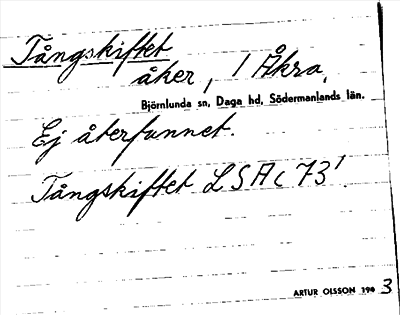 Tångskiftet
åker, 1 Åkra,
Björnlunda sn, Daga hd, Södermanlands län.
Ej återfunnet.
Tångskiftet LSA C 73¹.
ARTUR OLSSON 194 3